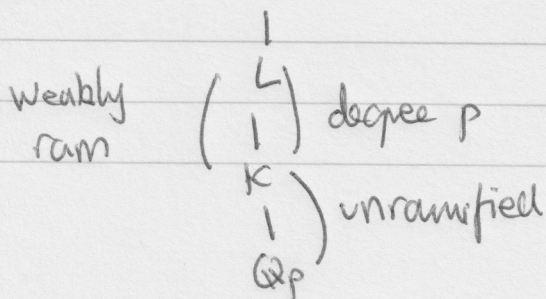 L
weakly ram
degree p
K
unramified
Qp